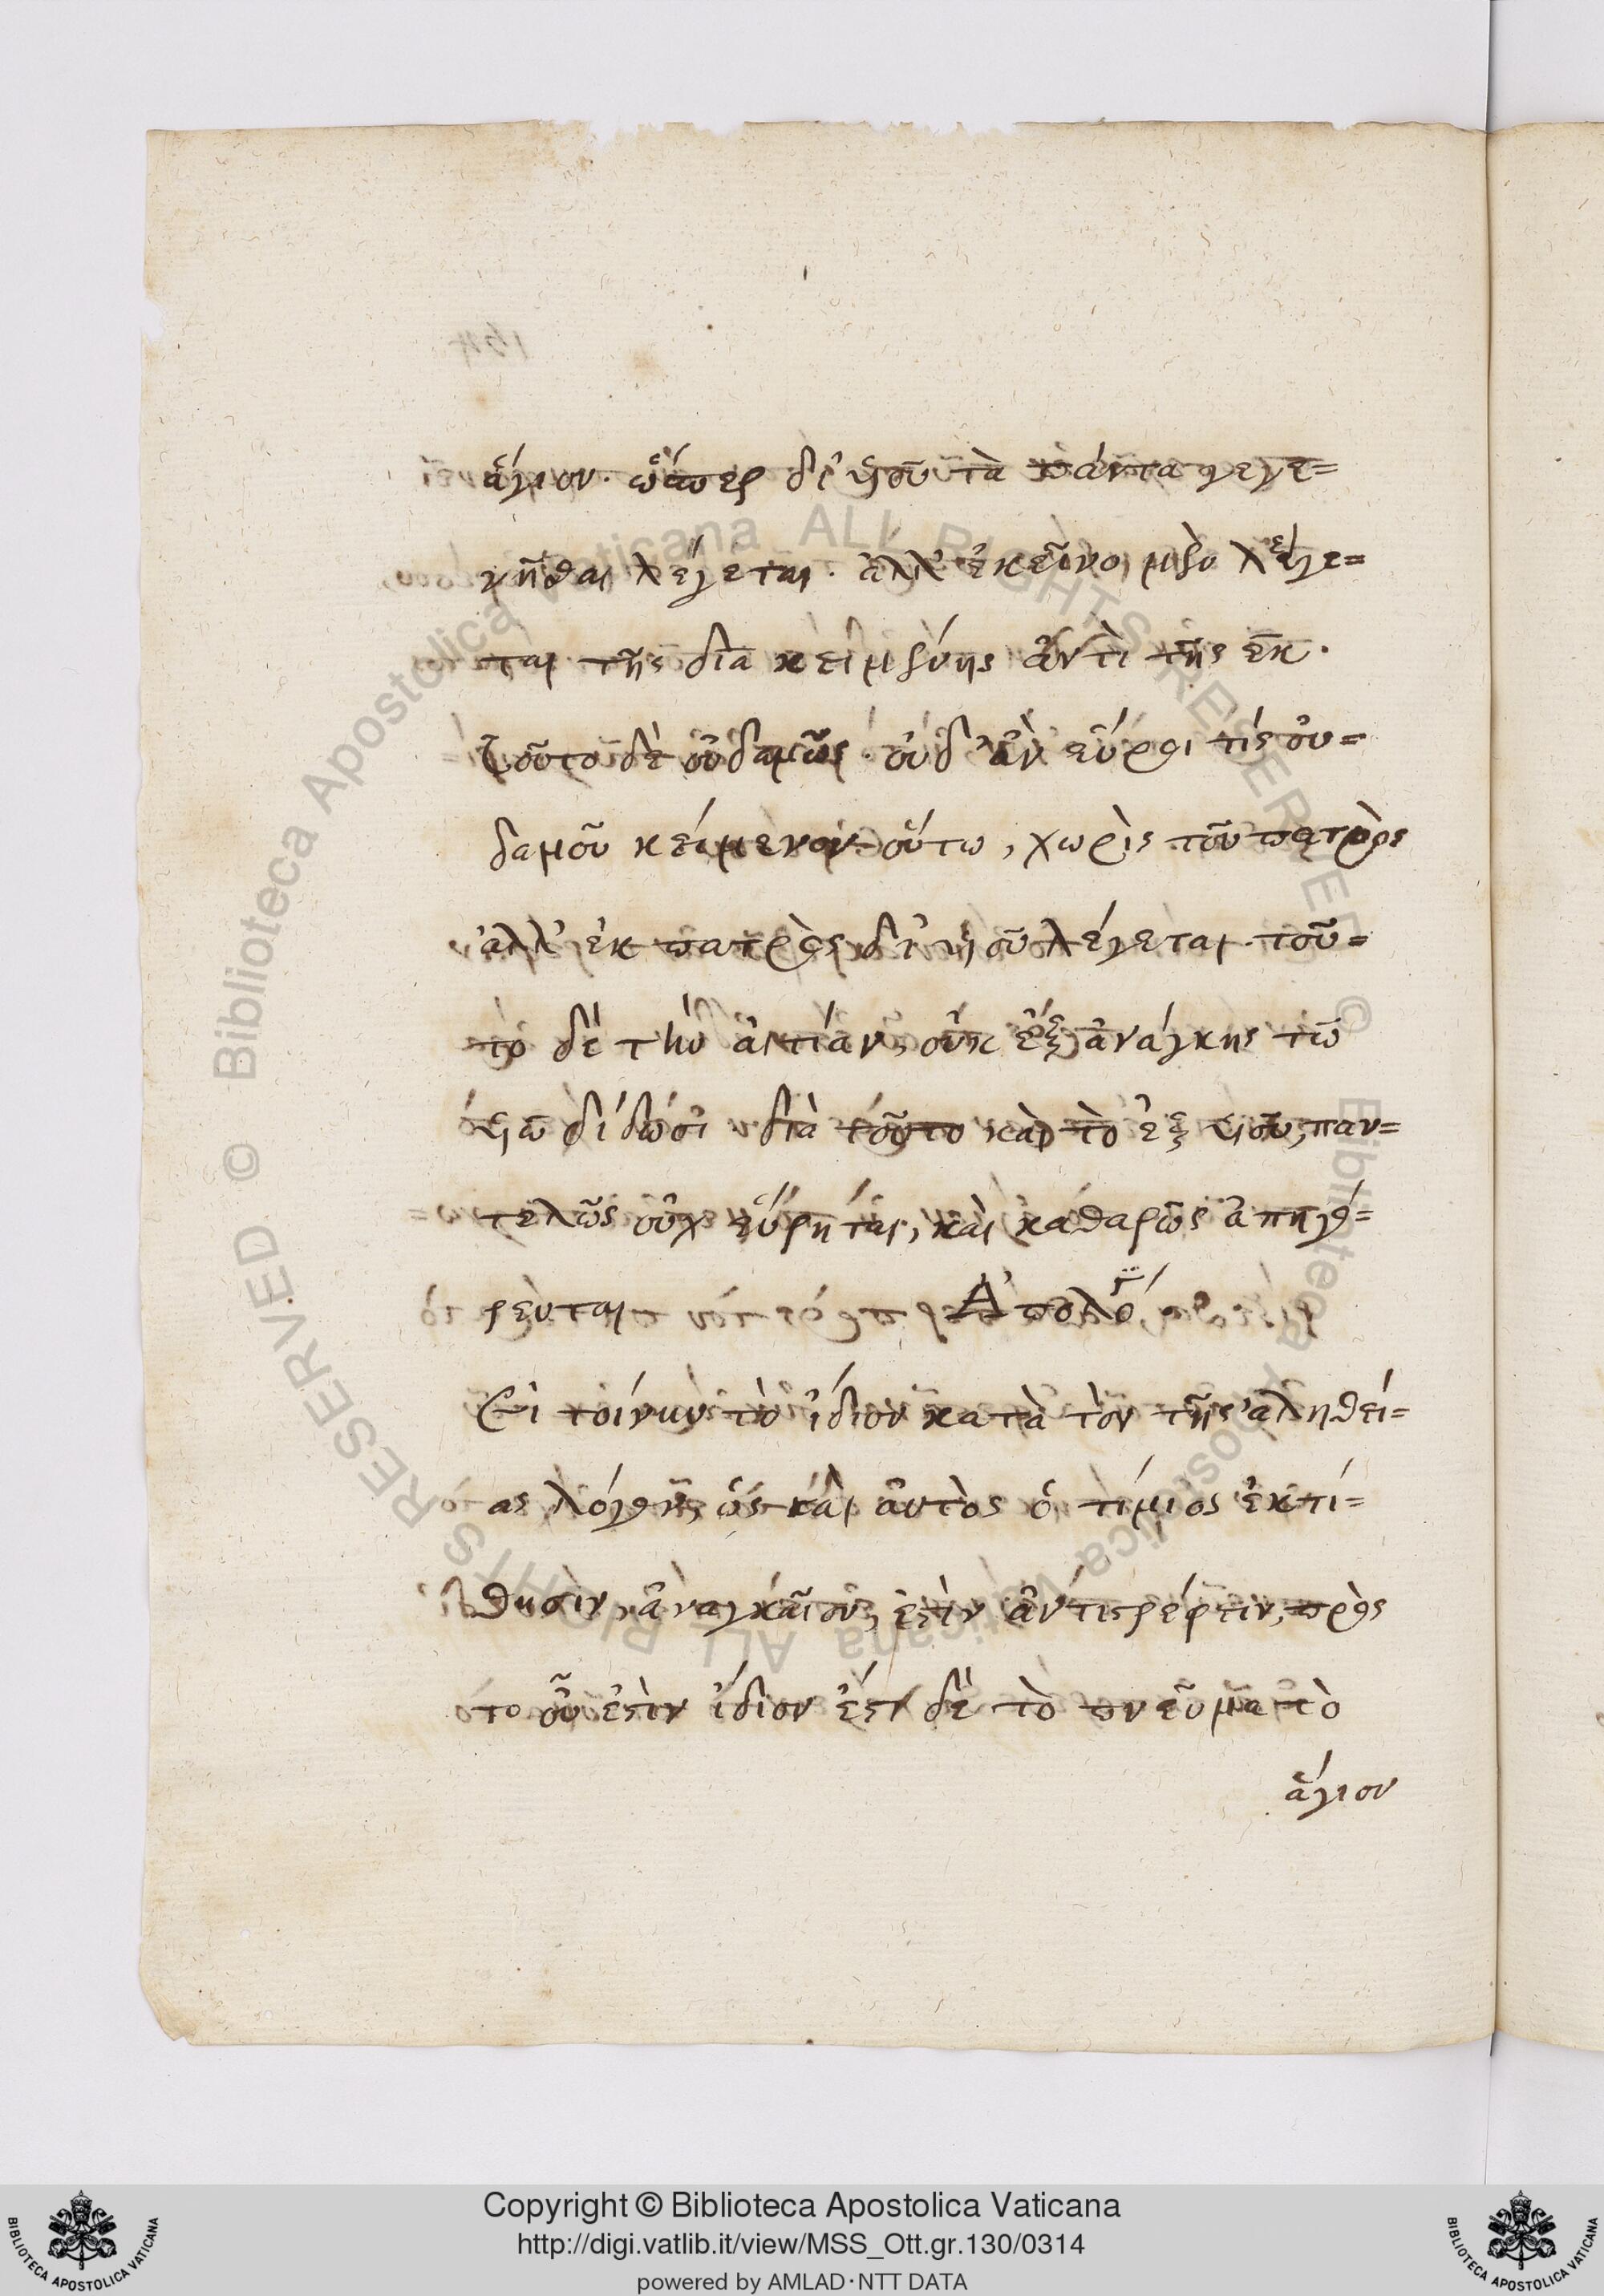 ἅγιον. ὥσπερ δι' υἱοῦ τὰ πάντα γεγε=
νῆσθαι λέγεται. ἀλλ' ἐκεῖνο μὲν λέγε=
ται τῆς διὰ κειμένης ἀντὶ τῆς ἐκ.
Τοῦτο δὲ οὐδαμῶς. οὐδ' ἂν εὕροι τίς οὐ=
δαμοῦ κείμενον οὕτω, χωρὶς τοῦ πατρὸς
ἀλλ' ἐκ πατρὸς δι' υἱοῦ λέγεται. τοῦ=
το δὲ τὴν αἰτίαν, οὐκ ἐξ ἀνάγκης τῶ
υἱῶ δίδωσι διὰ τοῦτο καὶ τὸ ἐξ υἱοῦ, παν=
τελῶς οὐχ εὕρηται, καὶ καθαρῶς ἀπηγό=
ρευται Ἀπολο
Εἰ τοίνυν τὸ ἴδιον κατὰ τὸν τῆς ἀληθεί=
ας λόγον, ὡς καὶ αὐτὸς ὁ τίμιος ἐκτί=
θησιν, ἀναγκαῖον, ἐστὶν ἀντιστρέφειν, πρὸς
το οὗ ἐστὶν ἴδιον ἐστὶ δὲ τὸ πνεῦμα τὸ
ἅγιον
Copyright © Biblioteca Apostolica Vaticana
http://digi.vatlib.it/view/MSS_Ott.gr.130/0314
powered by AMLAD·NTT DATA
BIBLIOTECA APOSTOLICA VATICANA
BIBLIOTECA APOSTOLICA VATICANA
© Biblioteca Apostolica Vaticana ALL RIGHTS RESERVED © Biblioteca Apostolica Vaticana ALL RIGHTS RESERVED